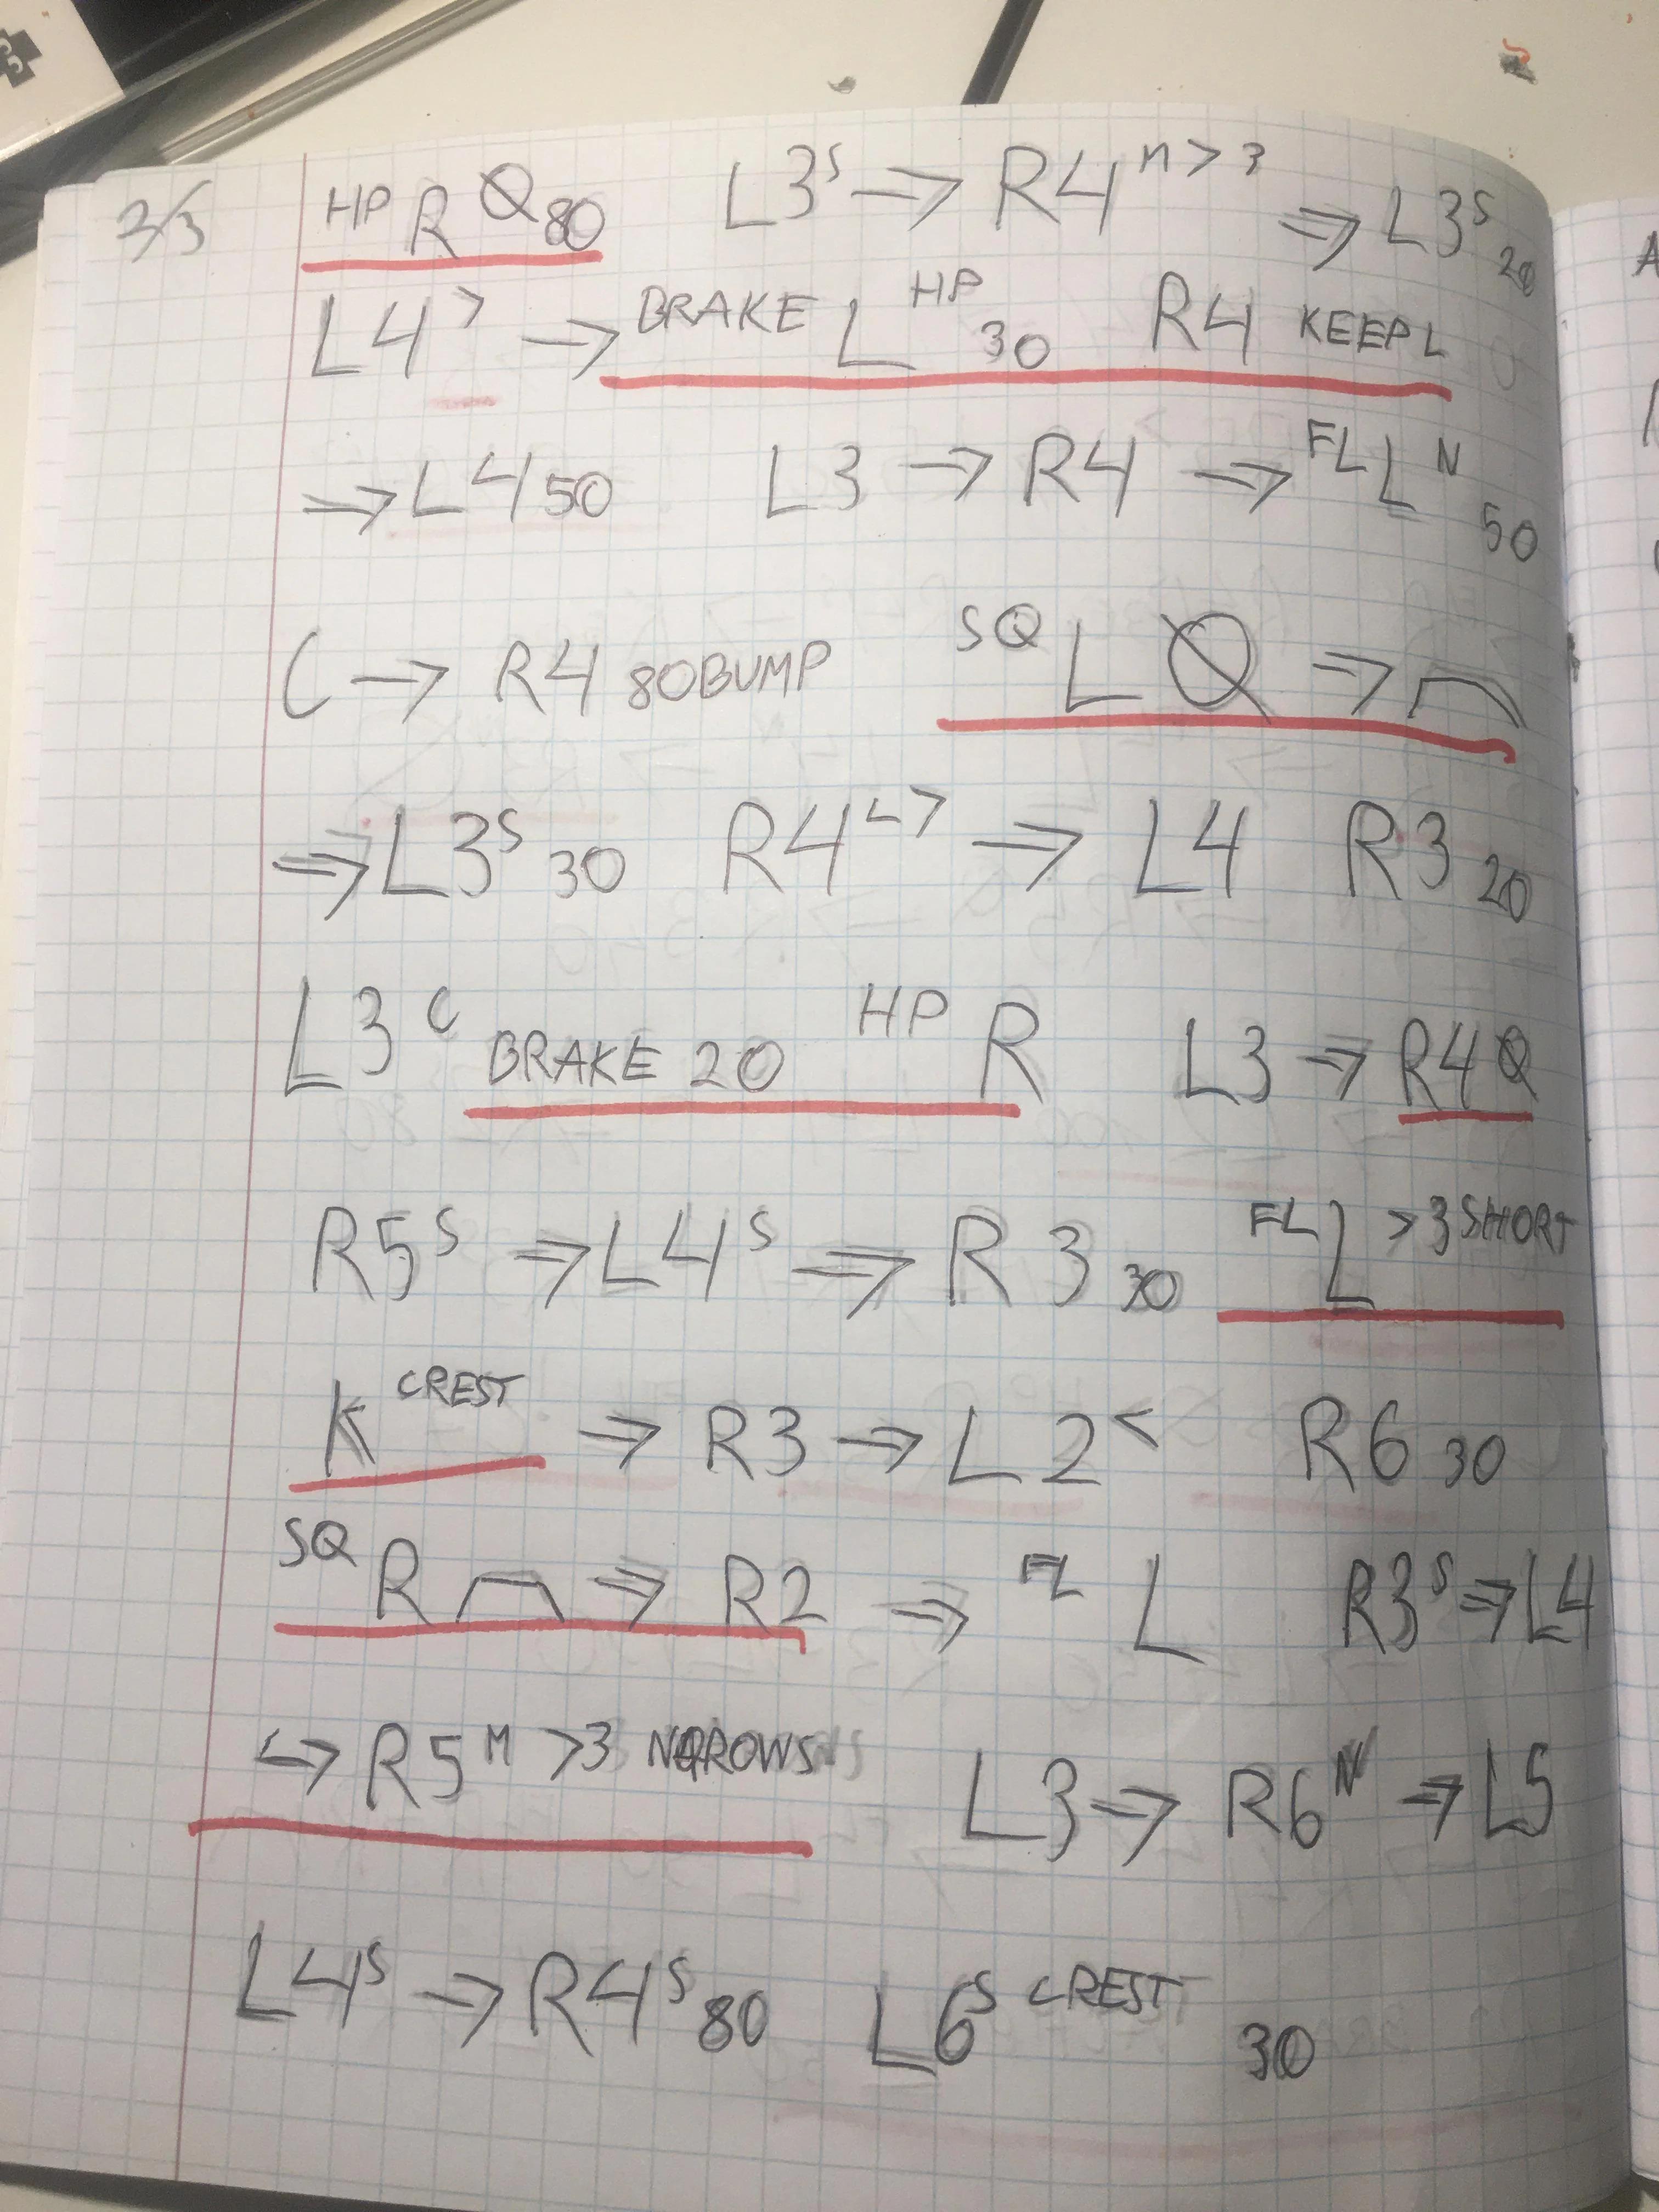 2/3 HP R Ꝗ 80 L3 S → R4 M > 3 → L3 S 20
L4 > → BRAKE L HP 30 R4 KEEP L
→ L4 50 L3 → R4 → FL L N 50
C → R4 80 BUMP SQ L Ꝗ →
→ L3 S 30 R4 L > → L4 R3 20
L3 C BRAKE 20 HP R L3 → R4 Ꝗ
R5 S → L4 S → R3 30 FL L > 3 SHORT
K CREST → R3 → L2 < R6 30
SQ R → R2 → FL L R3 S → L4
↪ R5 M > 3 NARROWS L3 → R6 N → L5
L4 S → R4 S 80 L6 S CREST 30